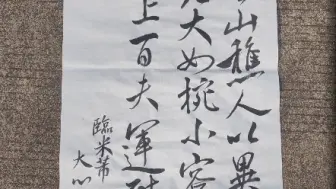 山樵人以異
大如椀小容
上百夫運
臨米芾
大